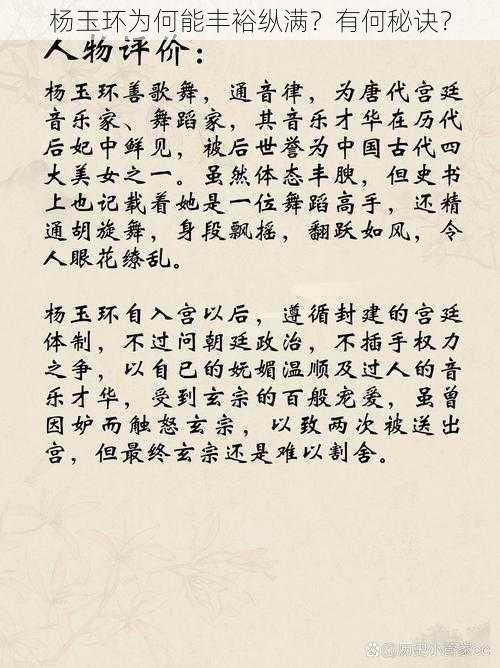 杨玉环为何能丰裕纵满？有何秘诀？
人物评价：
杨玉环善歌舞，通音律，为唐代宫廷
音乐家、舞蹈家，其音乐才华在历代
后妃中鲜见，被后世誉为中国古代四
大美女之一。虽然体态丰腴，但史书
上也记载着她是一位舞蹈高手，还精
通胡旋舞，身段飘摇，翻跃如风，令
人眼花缭乱。
杨玉环自入宫以后，遵循封建的宫廷
体制，不过问朝廷政治，不插手权力
之争，以自己的妩媚温顺及过人的音
乐才华，受到玄宗的百般宠爱，虽曾
因妒而触怒玄宗，以致两次被送出
宫，但最终玄宗还是难以割舍。